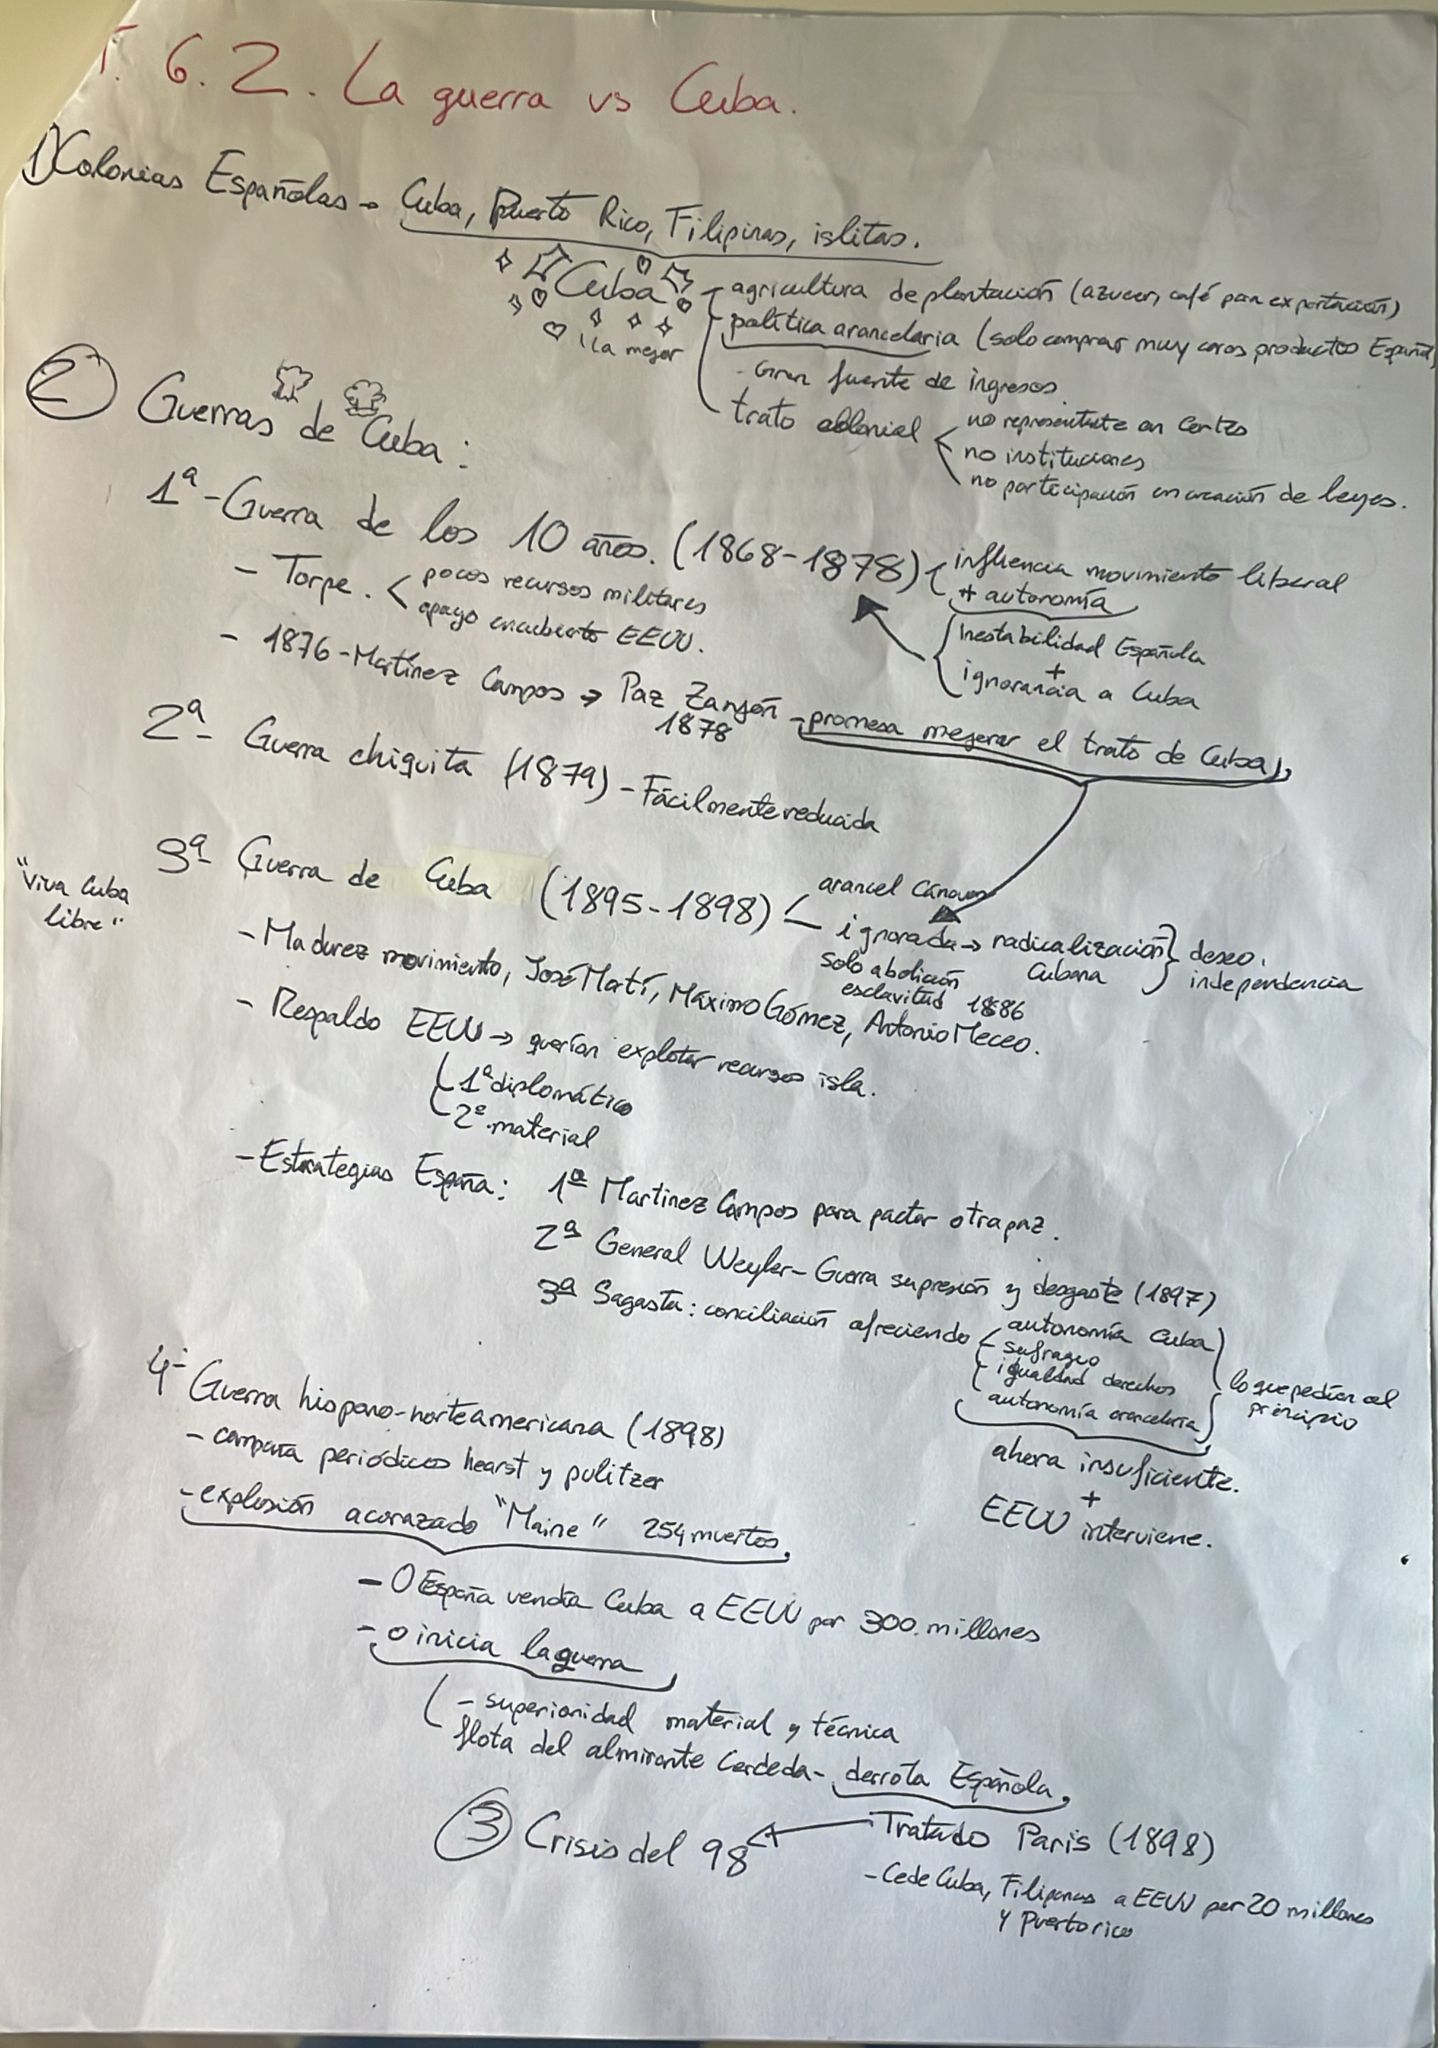 T. 6.2. La guerra vs Cuba.
1) Colonias Españolas → Cuba, Puerto Rico, Filipinas, islitas.
Cuba
¡La mejor
- agricultura de plantación (azucar, café para exportación)
- política arancelaria (solo comprar muy caros productos Español)
- Gran fuente de ingresos.
trato colonial
no representante en Cortes
no instituciones
no participación en creación de leyes.
2 Guerras de Cuba:
1ª - Guerra de los 10 años. (1868-1878)
influencia movimiento liberal
+ autonomía
Inestabilidad Española
+
ignorancia a Cuba
- Torpe.
pocos recursos militares
apoyo encubierto EEUU.
- 1876 - Martínez Campos → Paz Zanjón - promesa mejorar el trato de Cuba
1878
2ª - Guerra chiquita (1879) - Fácilmente reducida
3ª Guerra de Cuba (1895-1898)
"Viva Cuba
libre"
arancel Cánovas
ignorada → radicalización
Cubana
deseo
independencia
solo abolición
esclavitud 1886
- Madurez movimiento, José Martí, Máximo Gómez, Antonio Meceo.
- Respaldo EEUU → querían explotar recursos isla.
1º diplomático
2º material
- Estrategias España: 1ª Martinez Campos para pactar otra paz.
2ª General Weyler - Guerra supresión y desgaste (1897)
3ª Sagasta: conciliación ofreciendo
autonomía Cuba
sufragio
igualdad derechos
autonomía arancelaria
lo que pedían al
principio
ahora insuficiente.
+
EEUU interviene.
4- Guerra hispano-norteamericana (1898)
- campaña periódicos hearst y pulitzer
- explosión acorazado "Maine" 254 muertos.
- O España vendía Cuba a EEUU por 300 millones
- o inicia la guerra
- superioridad material y técnica
flota del almirante Cerdeda - derrota Española.
3 Crisis del 98
Tratado Paris (1898)
- Cede Cuba, Filipinas a EEUU por 20 millones
y Puerto rico